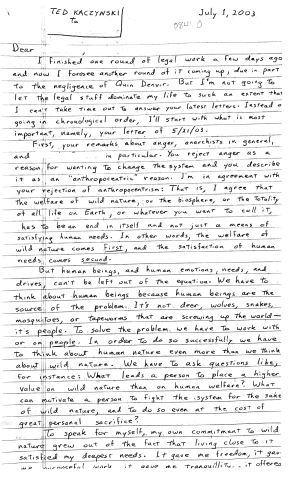 TED KACZYNSKI
To
July 1, 2003
Dear
I finished one round of legal work a few days ago
and now I foresee another round of it coming up, due in part
to the negligence of Quin Denvir. But I'm not going to
let the legal stuff dominate my life to such an extent that
I can't take time out to answer your latest letters. Instead of
going in chronological order, I'll start with what is most
important, namely, your letter of 5/21/03.
First, your remarks about anger, anarchists in general,
and in particular. You reject anger as a
reason for wanting to change the system and you describe
it as an "anthropocentric" reason. I'm in agreement with
your rejection of anthropocentrism: That is, I agree that
the welfare of wild nature, or the biosphere, or the totality
of all life on Earth, or whatever you want to call it,
has to be an end in itself and not just a means of
satisfying human needs. In other words, the welfare of
wild nature comes First, and the satisfaction of human
needs comes second.
But human beings, and human emotions, needs, and
drives, can't be left out of the equation. We have to
think about human beings because human beings are the
source of the problem. It's not deer, wolves, snakes,
mosquitoes, or tapeworms that are screwing up the world—
it's people. To solve the problem, we have to work with
or on people. In order to do so successfully we have
to think about human nature even more than we think
about wild nature. We have to ask questions like,
for instance: What leads a person to place a higher
value on wild nature than on human welfare? What
can motivate a person to fight the system for the sake
of wild nature, and to do so even at the cost of
great personal sacrifice?
To speak for myself, my own commitment to wild
nature grew out of the fact that living close to it
satisfied my deepest needs. It gave me freedom, it gave
me work, it gave me tranquility, it offered